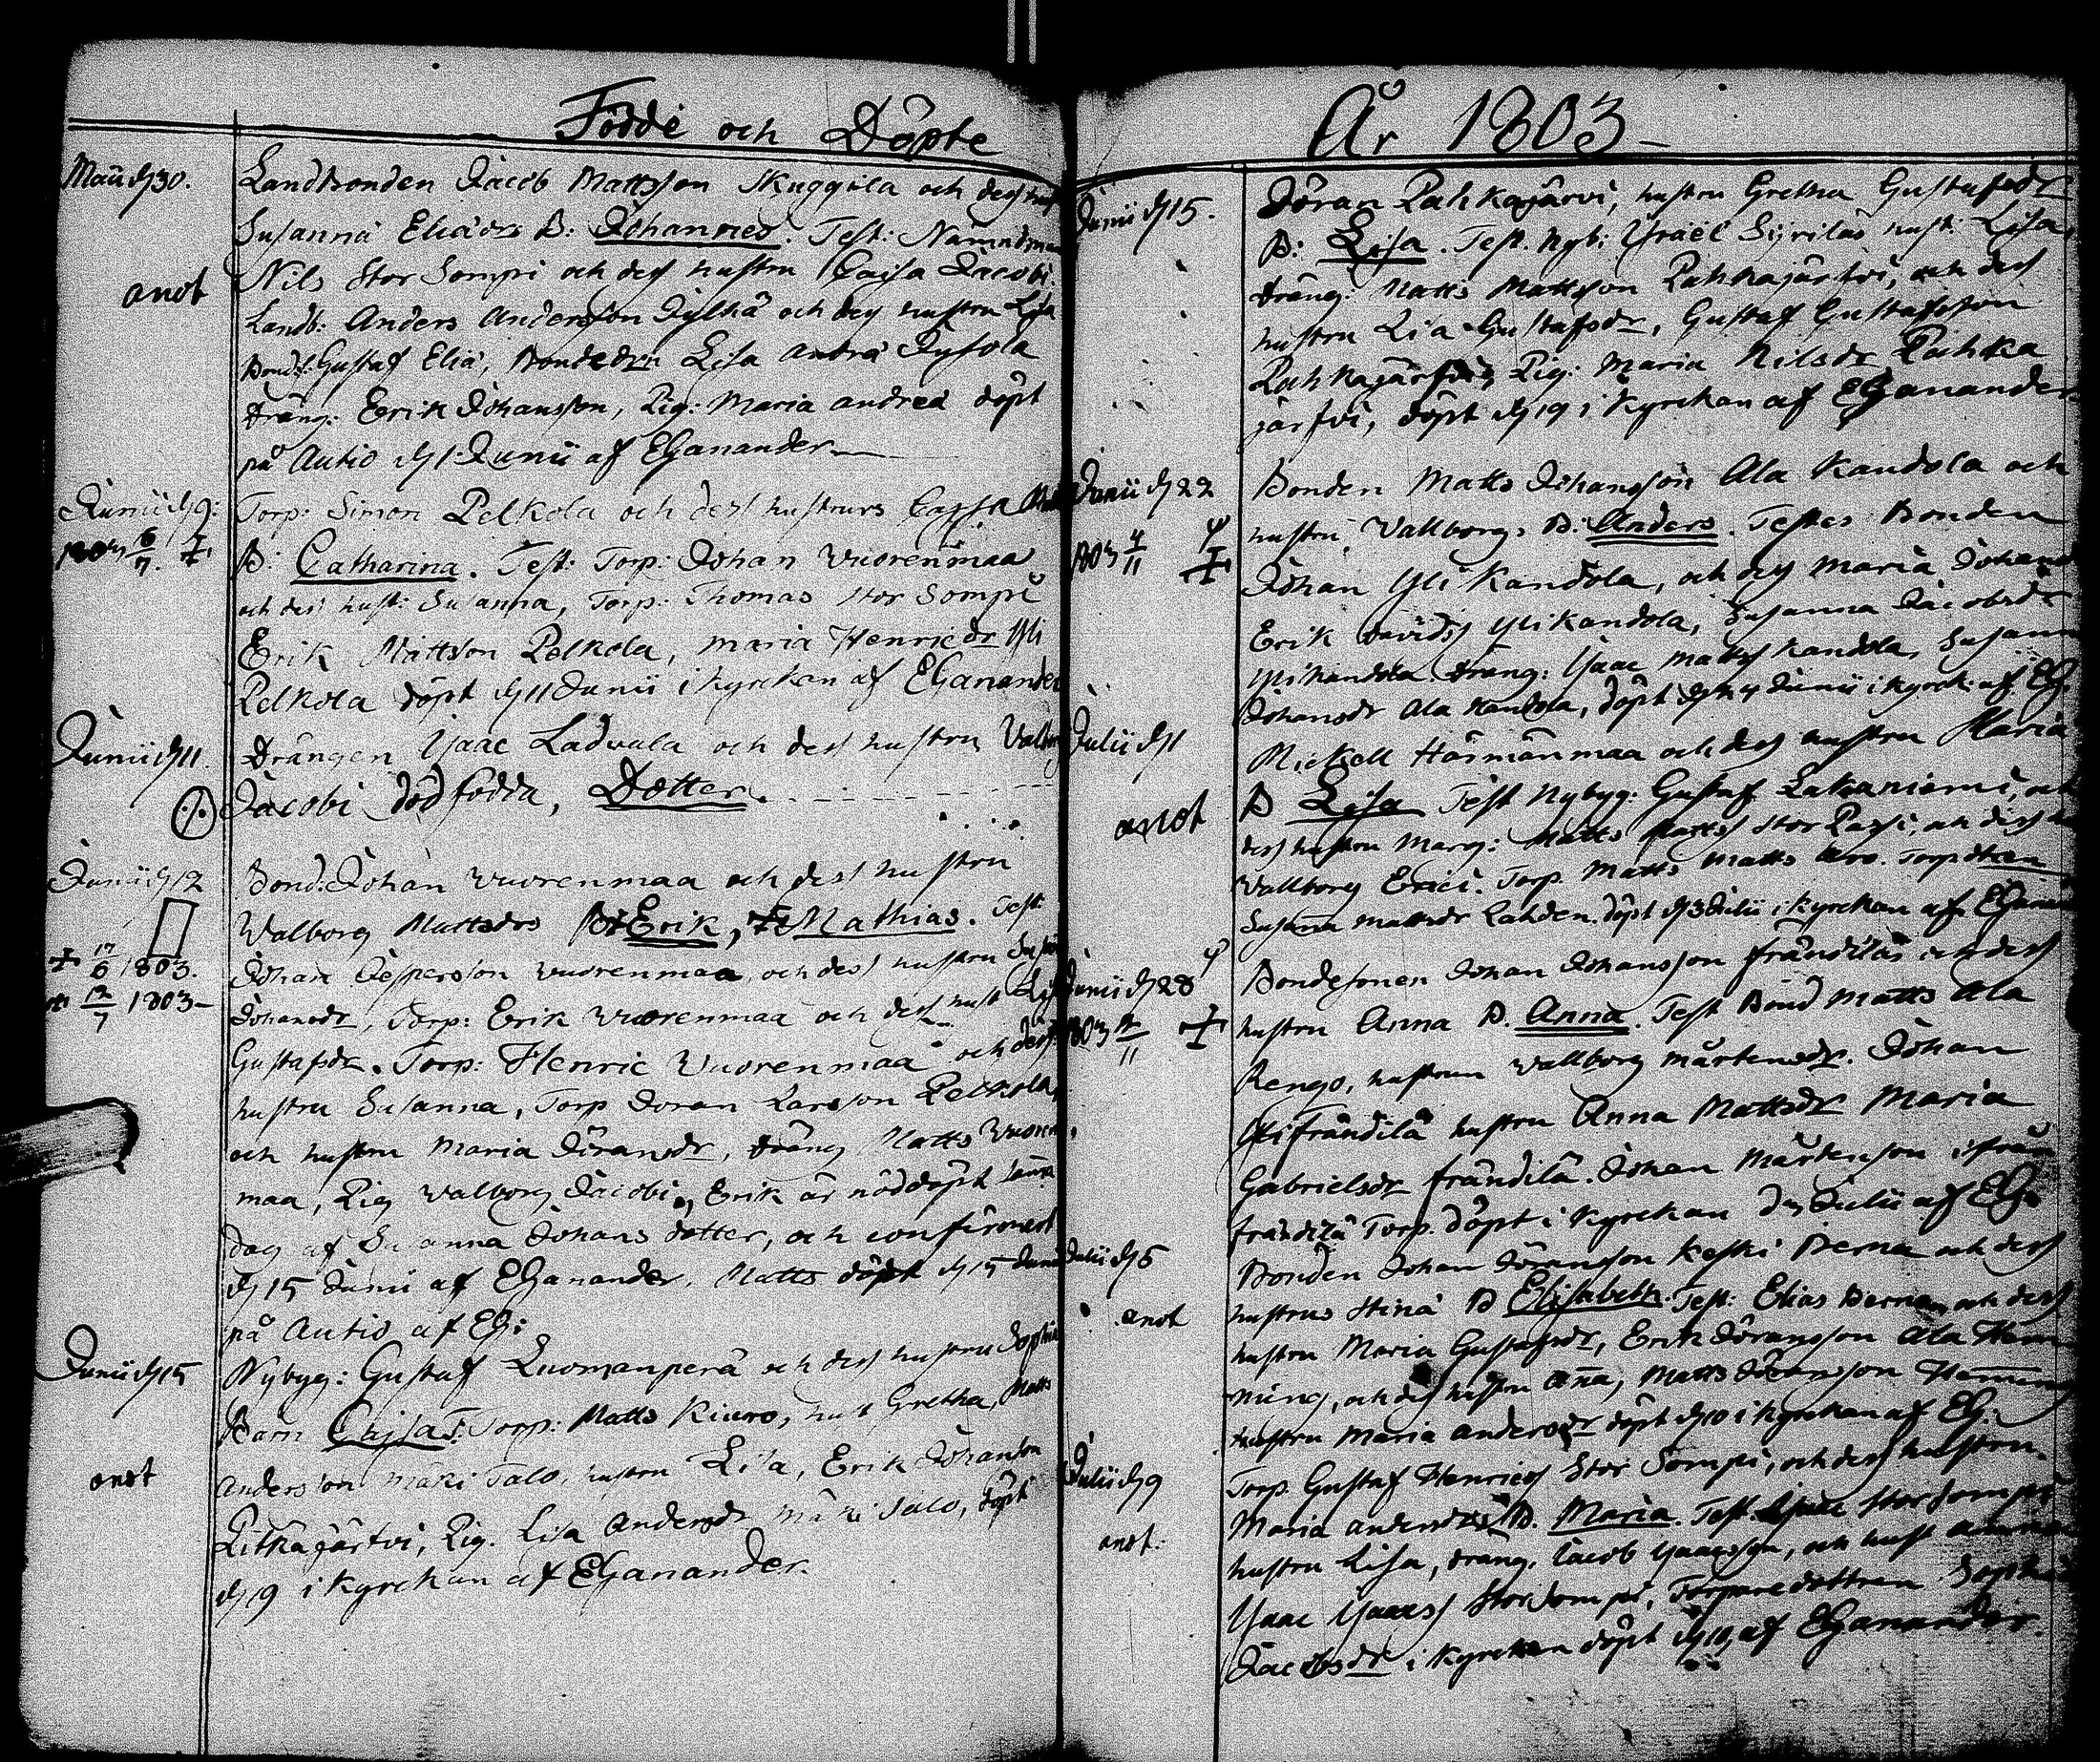 Födde och Döpte
Maii d 30. Landbonden Jacob Mattsson Skuggila och dess hust
Susanna Eliædr B: Johannes. Test: Nämndman
Nils Stor Sompi och dess hustru Caisa Jacobi.
anot Landb: Anders Andersson Jylhä och dess hustru Lisa
Bonds: Gustaf Eliä, Bondedr Lisa Andrä
dräng: Erik Johansson, Pig: Maria Andreä döpt
på Autio d 1 Junii af EGanander
Junii d 9: Torp: Simon Pelkola och dess hustrurs Cajsa
1803 6/7. † B: Catharina. Test: Torp: Johan Vuorenmaa
och dess hust: Susanna, Torp: Thomas Stor Sompi
Erik Mattson Pelkola, Maria Henricdr Yli
Pelkola döpt d 11 Junii i Kyrckan af EGanander
Junii d 11. Drängen Isaac Ladvala och dess hustru Valborg
Jacobi död födda, Dotter.
Junii d 12 Bond: Johan Vuorenmaa och dess hustru
Valborg Mattsdrs B: † Erik, † Mathias. Test:
† 17/6 1803. Johan Jespersson Vuorenmaa, och dess hustru
† 12/7 1803 Johansdr, Torp: Erik Vuorenmaa och dess hust
Gustafsdr. Torp: Henric Vuorenmaa och dess
hustru Susanna, Torp Jöran Larsson Pelkola,
och hustru Maria Jöransdr, dräng Matts Vuoren
maa, Pig Valborg Jacobi, Erik är nöddöpt samma
dag af Susanna Johans dotter, och confirmerd
d 15 Junii af EGanander. Matts döpt d 15 Junii
på Autio af EG:
Junii d 15 Nybyg: Gustaf Luomanperä och dess hustru Sophia
Barn Cajsa. T: Torp: Matts Kiuro, hust Gretha, Matts
anot Andersson Mäki Talo, hustru Lisa, Erik Johanson
Pitkäjärfvi, Pig. Lisa Andersdr Mäki Talo, döpt
d 19 i Kyrckan af EGanander.
År 1803
Junii d 15. Jöran Pahkajärvi, hustru Gretha Gustafsdr
B: Lisa. Test. Nyb: Israël Syrilas hust. Lisa,
dräng: Matts Mattson Pahkajärfvi, och dess
hustru Lisa Gustafsdr, Gustaf Gustafsson
Pahkajärfvi, Pig: Maria Nilsdr Pahka
järfvi, döpt d 19 i Kyrckan af EGanander
Junii d 22 Bonden Matts Johansson Ala Kandola och
1803 4/11 † hustru Vallborg, B: Anders. Testes Bonden
Johan Yli Kandola, och dess Maria Johans
Erik Davidss Ylikandola, Susanna Jacobsdr
Ylikandola dräng: Isaac Matts Kandola, Susanna
Johansdr Ala Kandola, döpt d 24 Junii i Kyrck: af EG.
Julii d 1 Mickell Härmänmaa och dess hustru Maria
anot B Lisa Test Nybyg: Gustaf Lakaniemi, och
dess hustru Marg: Matts Matts Stor Passi, och dess
Vallborg Erici. Torp. Matts Matts Torpdtren
Susanna Mattsdr Lahden. döpt d 3 Julii i Kyrckan af EGanan
Junii d 28 Bondesonen Johan Johansson Frändilä och dess
1803 /11 † hustru Anna B. Anna. Test Bond Matts Ala
Rengo, hustrun Vallborg Mårtensdr. Johan
Yli Frändilä hustru Anna Mattsdr Maria
Gabrielsdr Frändilä. Johan Mårtenson ifrån
Frändilä Torp. döpt i Kyrckan Julii af EG.
Julii d 5 Bonden Johan Jöransson Keski Perna och dess
anot hustrus Stina B Elisabeth. Test: Elias Perna, och dess
hustru Maria Gustafsdr, Erik Jöransson Ala Hem
ming, och dess hustru Anna, Matts Jöransson Hemming
hustru Maria Andersdr döpt d 10 i Kyrckan af EG:
Julii d 9 Torp. Gustaf Henrics Stor Sompi, och dess hustru
anot: Maria Andersdr B. Maria. Test. Isaac Storsompi
hustru Lisa, dräng. Jacob Isaacsson, och hust Anna
Isaac Isaacs Storsompi, Torpare dottren Sophia
Jacobsdr i Kyrckan döpt d 10 af EGanander.